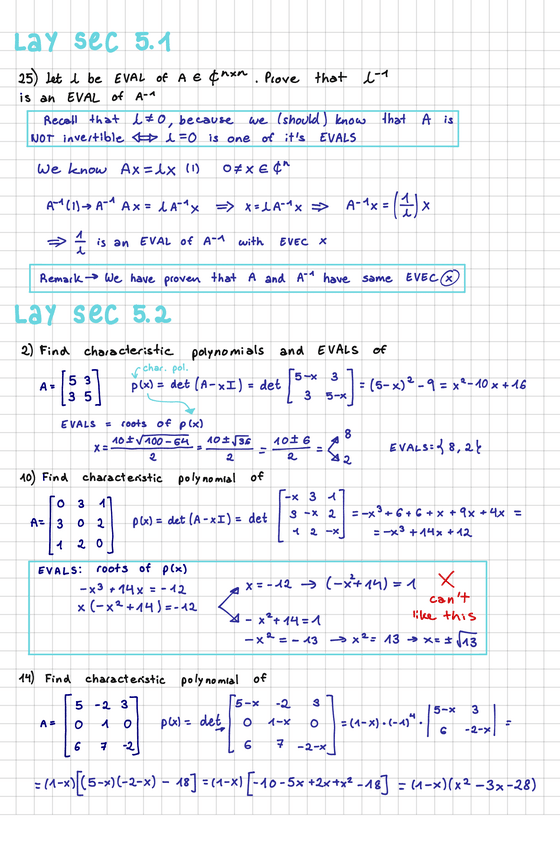 Lay sec 5.1
25) Let λ be EVAL of A ∈ ℂⁿˣⁿ. Prove that λ⁻¹
is an EVAL of A⁻¹
Recall that λ≠0, because we (should) know that A is
NOT invertible ⟺ λ=0 is one of it's EVALS
We know Ax=λx (1) 0≠x ∈ ℂⁿ
A⁻¹(1)→A⁻¹ Ax = λA⁻¹x ⟹ x=λA⁻¹x ⟹ A⁻¹x = (1/λ) x
⟹ 1/λ is an EVAL of A⁻¹ with EVEC x
Remark → We have proven that A and A⁻¹ have same EVEC ⓧ
Lay sec 5.2
2) Find characteristic polynomials and EVALS of
char. pol.
A= [5 3; 3 5] p(x) = det (A-xI) = det [5-x 3; 3 5-x] = (5-x)² - 9 = x² - 10x + 16
EVALS = roots of p(x)
x = (10±√(100-64))/2 = (10±√36)/2 = (10±6)/2 = 8 2 EVALS={8, 2}
10) Find characteristic polynomial of
A= [0 3 1; 3 0 2; 1 2 0] p(x) = det (A-xI) = det [-x 3 1; 3 -x 2; 1 2 -x] = -x³+6+6+x+9x+4x =
= -x³+14x+12
EVALS: roots of p(x)
-x³+14x = -12
x(-x²+14) = -12
x = -12 → (-x²+14) = 1
-x²+14=1
-x² = -13 → x² = 13 → x = ±√13
X
can't
like this
14) Find characteristic polynomial of
A= [5 -2 3; 0 1 0; 6 7 -2] p(x) = det [5-x -2 3; 0 1-x 0; 6 7 -2-x] = (1-x)·(-1)⁴·|5-x 3; 6 -2-x| =
= (1-x)[(5-x)(-2-x) - 18] = (1-x)[-10-5x+2x+x²-18] = (1-x)(x²-3x-28)